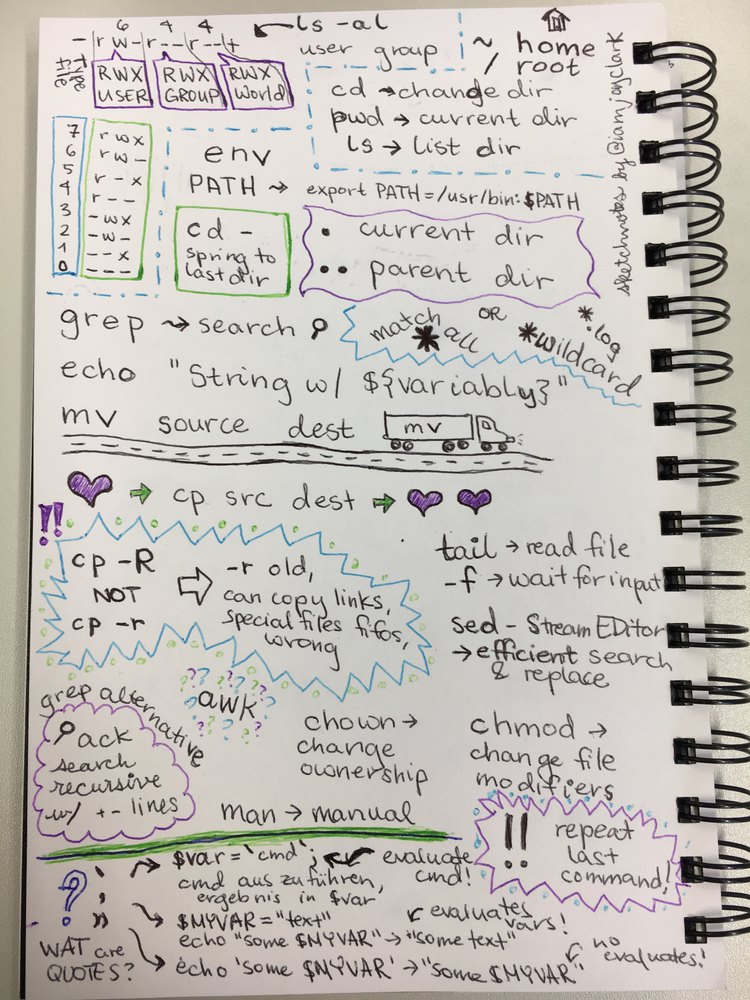 6 4 4
- | r w - | r - - | r - - | +
ls -al
File Type
RWX USER
RWX GROUP
RWX World
user group
~ home
/ root
cd → change dir
pwd → current dir
ls → list dir
sketchnotes by @iamjoyclark
7 r w x
6 r w -
5 r - x
4 r - -
3 - w x
2 - w -
1 - - x
0 - - -
env
PATH → export PATH=/usr/bin:$PATH
cd -
spring to
last dir
. current dir
.. parent dir
grep → search
match * all
OR
*wildcard
*.log
echo "String w/ ${variably}"
mv source dest
mv
cp src dest
!!
cp -R
NOT
cp -r
-r old,
can copy links,
special files fifos,
wrong
tail → read file
-f → wait for input
sed - Stream EDitor
→ efficient search
& replace
grep alternative
ack
search
recursive
w/ +- lines
??? awk ???
chown →
change
ownership
chmod →
change file
modifiers
man → manual
!! repeat
last
command!
WAT are
QUOTES?
? ` ' "
→ $var = `cmd`; ← evaluate
cmd!
cmd auszuführen,
ergebnis in $var
→ $MYVAR = "text"
evaluates
vars!
echo "some $MYVAR" → "some text"
→ echo 'some $MYVAR' → "some $MYVAR"
no
evaluates!